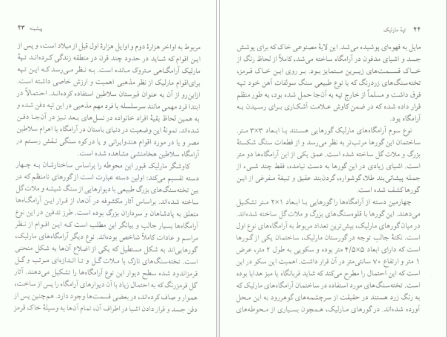 پیشینه ۴۳
مربوط به اواخر هزارهٔ دوم و اوایل هزارهٔ اول قبل از میلاد است، و پس از
این اقوام که شاید در حدود چند قرن در منطقه زندگی کرده‌اند تپهٔ
مارلیک آرامگاهی متروک مانده است. به نظر می‌رسد که این تپه
مارلیک از نظر مذهبی اهمیت و ارزش خاصی داشته است.
ازاین‌رو از آن به عنوان قبرستان سلاطین استفاده کرده‌اند. احتمالاً در
ابتدا فرد مهمی مانند سرسلسله یا فرد مهم مذهبی در این تپه دفن شده و
به همین لحاظ بقیهٔ افراد خانواده در نسل‌های بعد نیز در آن‌جا دفن
شده‌اند. نمونهٔ این وضعیت در دنیای باستان در آرامگاه یا اهرام سلاطین
مصر و یا در مورد اقوام هندوایرانی و یا در کوه سنگی نقش رستم در
آرامگاه سلاطین هخامنشی مشاهده شده است.
کاوشگر مارلیک قبور این محوطه را براساس ساختارشان به چهار
دسته تقسیم می‌کند: اولین دسته عبارت است از گورهای نامنظم که در
بین تخته‌سنگ‌های بزرگ طبیعی با دیوارهایی از سنگ شیسته و ملات گل
ساخته شده‌اند. براساس آثار مکشوفه در آن‌ها، از قرار این آرامگاه‌ها
متعلق به پادشاهان و سرداران بزرگ بوده است. طرز تدفین در این نوع
آرامگاه‌ها بسیار جالب و بیانگر این مطلب است که این اقوام از نظر
مراسم و عادات کاملاً شاخص بوده‌اند. نوع دیگر آرامگاه‌های مارلیک،
گورهایی‌اند به شکل مستطیل که یکی از اضلاع آن‌ها به شکل منحنی
است. تخته‌سنگ‌های نازک با ملات گل و تا اندازه‌ای مرتب و گل
قرمزاندود شده سطح دیوار این نوع آرامگاه‌ها را تشکیل می‌دهند. از این
گل قرمزرنگ که به احتمال زیاد با آن دیوارهای آرامگاه را پس از ساخت،
هموار و صاف کرده‌اند، در بعضی قسمت‌ها وجود دارد. هم‌چنین پس از
دفن و قرار دادن اشیا در اطراف آن، تمام آن‌ها به وسیلهٔ خاک قرمز
۴۴ تپهٔ مارلیک
مایل به قهوه‌ای پوشیده می‌شد. این لایهٔ مصنوعی خاک که برای پوشش
جسد و اشیای مدفون در آرامگاه ساخته می‌شد، کاملاً از لحاظ رنگ از
خاک قسمت‌های زیرین متمایز بود. بر روی این خاک قرمز،
تخته‌سنگ‌های زردرنگ که با نوع طبیعی سنگ سولفات آهن خود تپه
فرق داشت و مسلماً از خارج تپه به آن‌جا حمل شده بود، به طور منظم
قرار داده شده که در ضمن کاوش علامت آشکاری برای رسیدن به
آرامگاه بود.
نوع سوم آرامگاه‌های مارلیک گورهایی هستند با ابعاد ۳×۳ متر.
ساختمان این گورها مرتب‌تر به نظر می‌رسد و از قطعات سنگ شکستهٔ
بزرگ و ملات گل ساخته شده است. عمق یکی از این آرامگاه‌ها دو متر
است. اشیای زیادی در این گورها به دست نیامد، فقط چند شیء از
جمله پیشانی‌بند طلا، گوشواره، گردن‌بند عقیق و تیغهٔ مفرغی از این
گورها کشف شده است.
چهارمین دسته از آرامگاه‌ها را گورهایی با ابعاد ۲×۱ متر تشکیل
می‌دهند. این گورها با قلوه‌سنگ‌های بزرگ و ملات گل ساخته شده‌اند. از
میان گورهای مارلیک، بیش‌ترین تعداد مربوط به آرامگاه‌های نوع اول
است. نکتهٔ جالب توجه در گورستان مارلیک، ساختمان یکی از گورها
است که دارای ابعاد ۵×۴/۵ متر بوده و سکویی به طول ۲ متر، عرض
۱ متر و ارتفاع ۷۰ سانتی‌متر در آن قرار داشت. اهمیت این سکو در این
است که این احتمال را مطرح می‌کند که شاید قربانگاه یا میز هدایا بوده
است. تخته‌سنگ‌های مورد استفاده در ساختمان آرامگاه‌های مارلیک که
به رنگ زرد هستند در حقیقت از سرچشمه‌های گوهررود به این محل
آورده شده‌اند. در گورهای مارلیک، همچون بسیاری از محوطه‌های